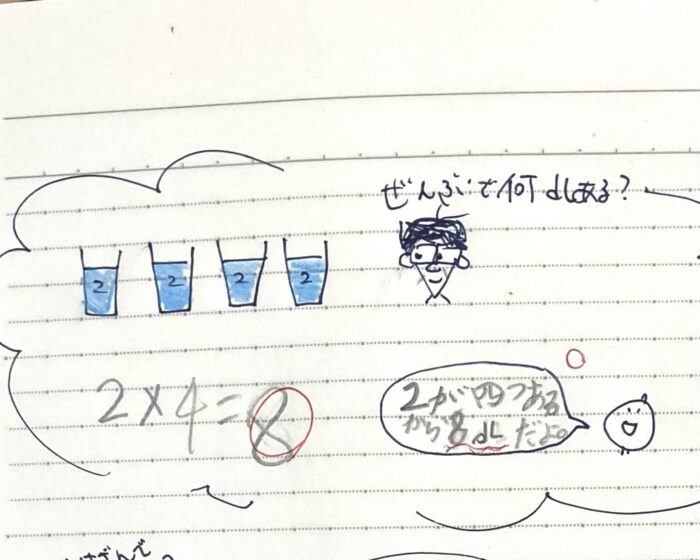 ぜんぶで何dLある?
2 2 2 2
2×4=8
2が四つある
から8dLだよ。